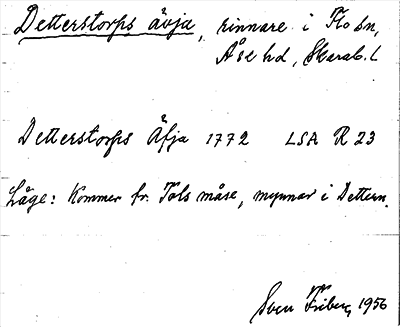 Detterstorps ävja, rinnare i Flo sn,
Åse hd, Skarab. l
Detterstorps Äfja 1772 LSA R 23
Läge: Kommer fr. Tols måse, mynnar i Dettern.
Sven Friberg 1956